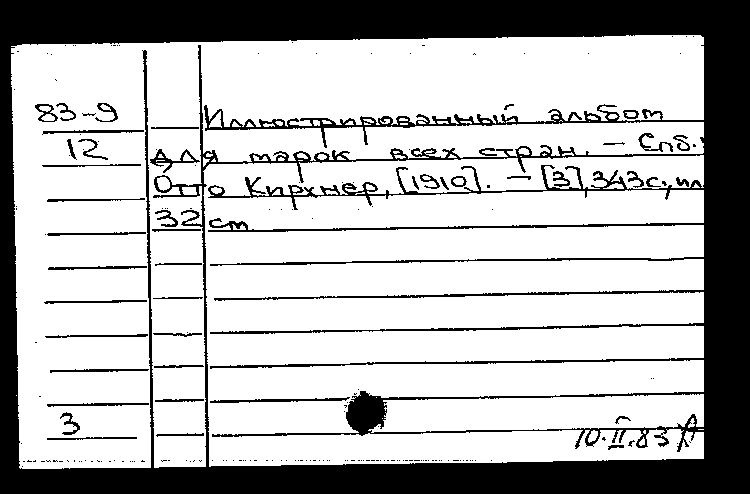 83-9
Иллюстрированный альбом
12
для марок всех стран. – Спб.:
Отто Кирхнер, [1910]. – [3], 343с.; ил.
32 см
3
10.II.83